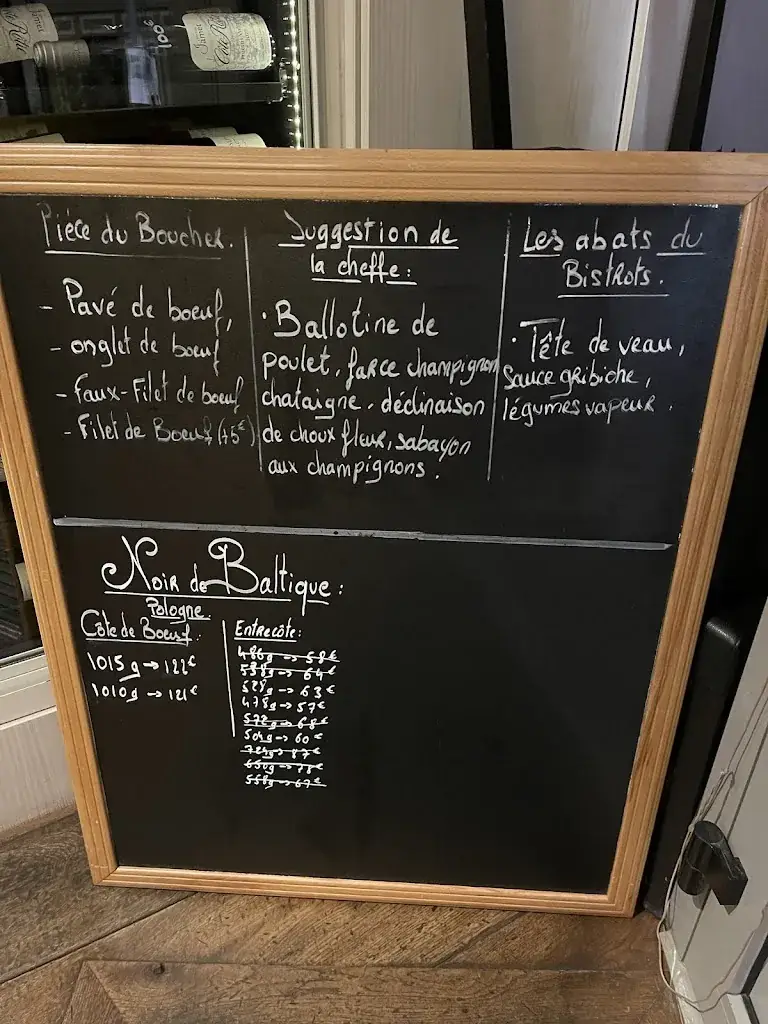 100€
Piéce du Boucher.
- Pavé de boeuf,
- onglet de boeuf
- Faux-Filet de boeuf
- Filet de Boeuf (45€)
Suggestion de
la cheffe:
• Ballotine de
poulet, farce champignon
chataigne, déclinaison
de choux fleur, sabayon
aux champignons.
Les abats du
Bistrots.
• Tête de veau,
Sauce gribiche,
légumes vapeur.
Noir de Baltique:
Pologne
Côte de Boeuf:
1015g → 122€
1010g → 121€
Entrecôte:
486g → 58€
538g → 64€
528g → 63€
478g → 57€
572g → 68€
504g → 60€
724g → 87€
650g → 78€
558g → 67€